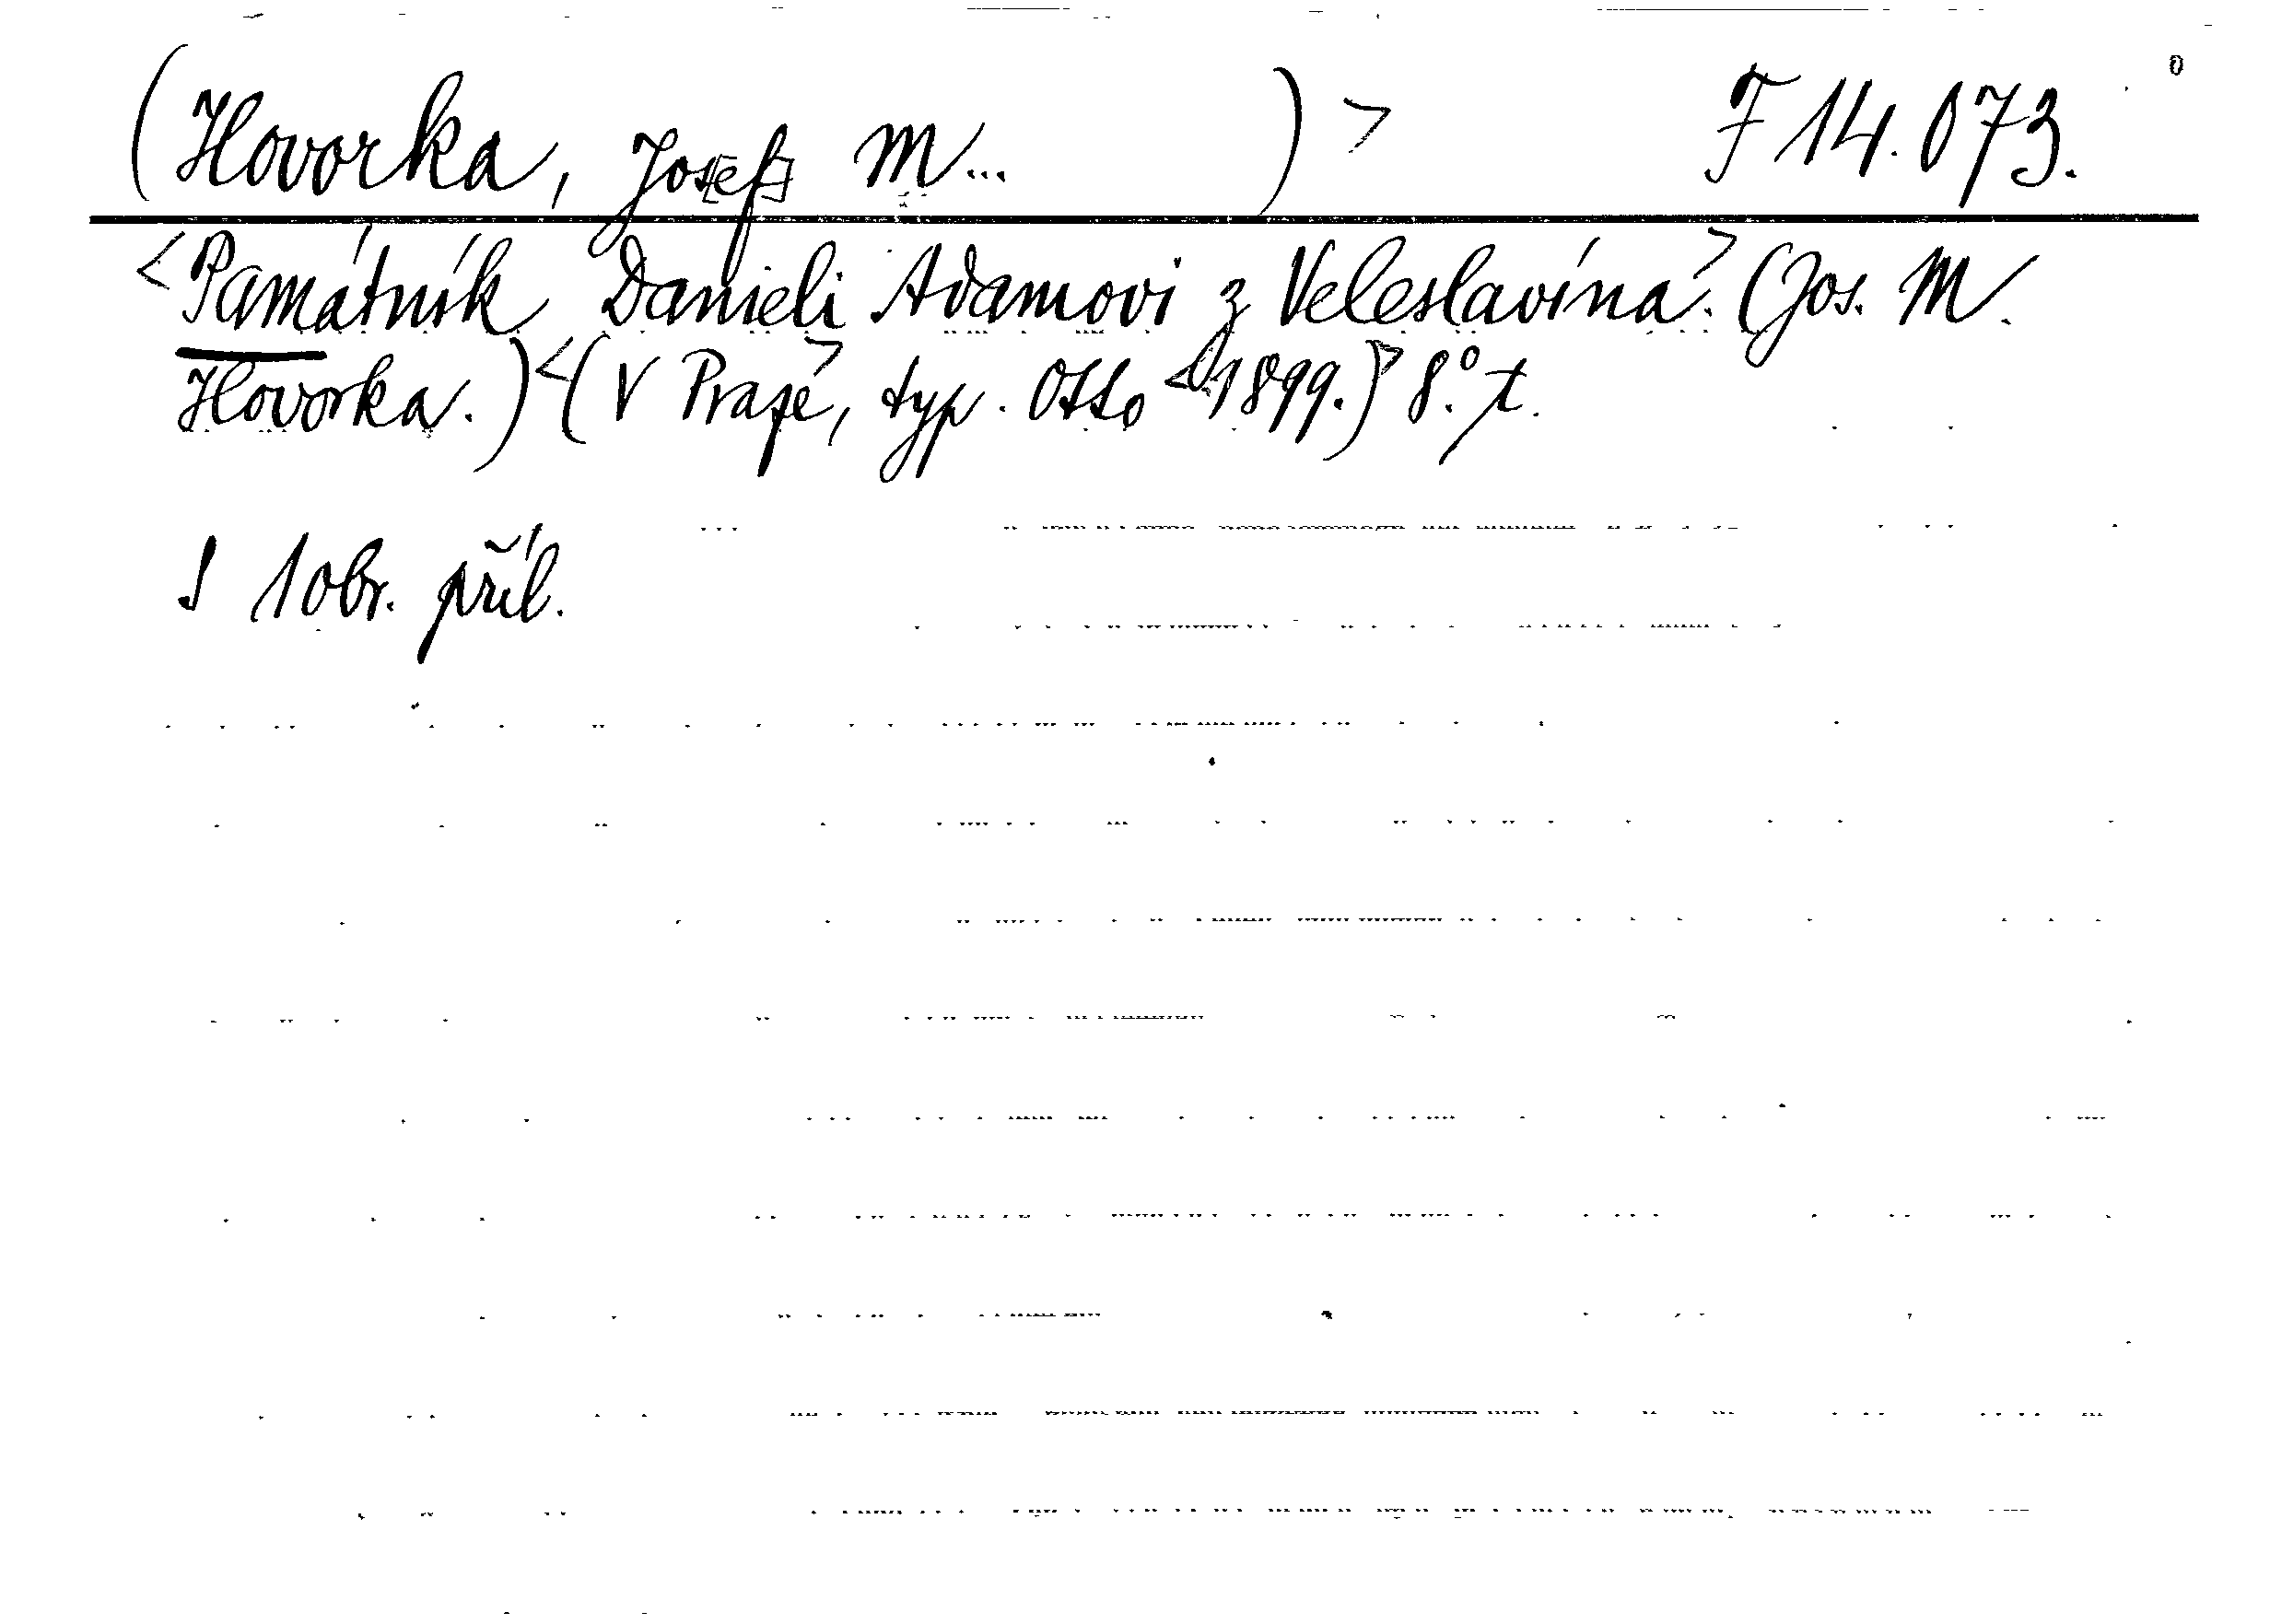 (Hovorka, Jos[ef] M... ) > F 14.073.
<Památník Danieli Adamovi z Veleslavína.> (Jos. M.
Hovorka.) <(V Praze, typ. Otto <1899.)> 8.° t.
S 1 obr. příl.